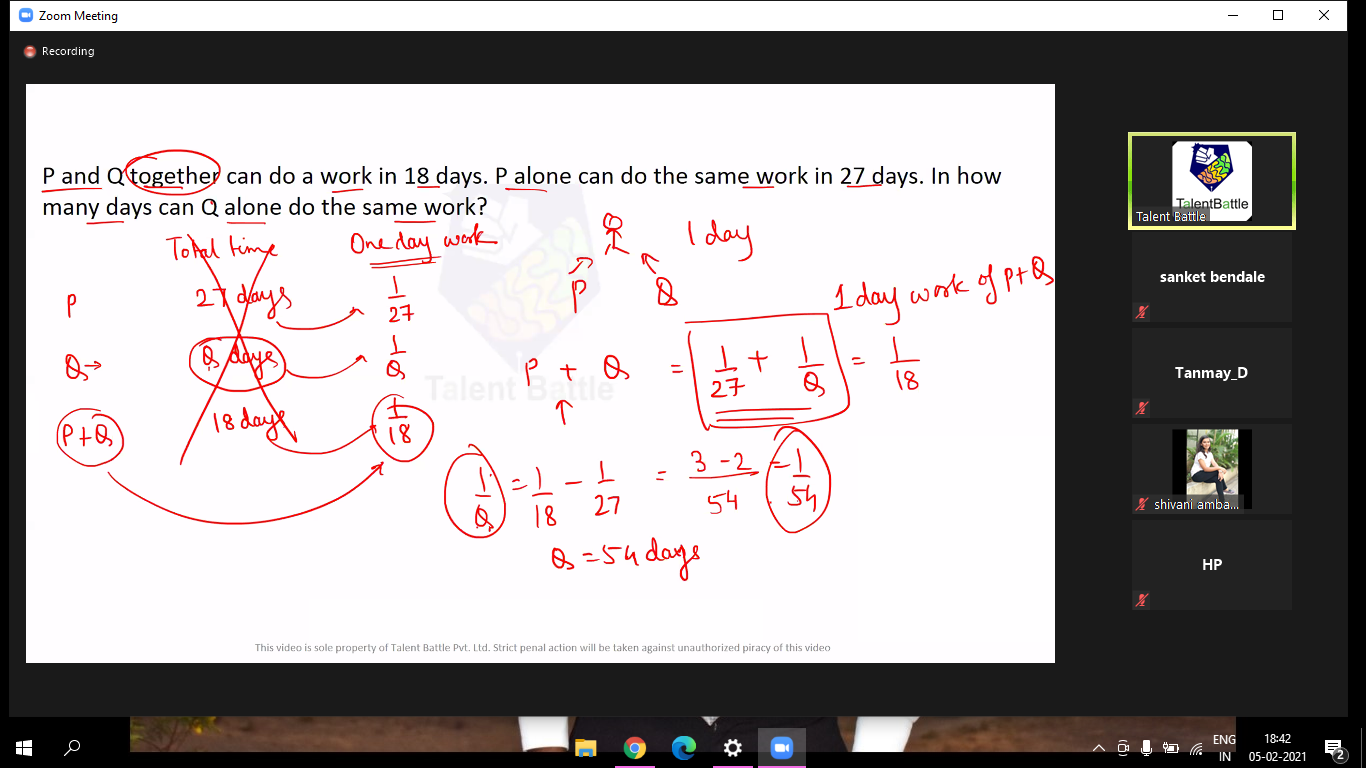 Zoom Meeting
Recording
P and Q together can do a work in 18 days. P alone can do the same work in 27 days. In how
many days can Q alone do the same work?
Total time One day work 1 day
P 27 days 1/27 P Q 1 day work of P+Q
Q→ Q days 1/Q P + Q = 1/27 + 1/Q = 1/18
P+Q 18 days 1/18
1/Q = 1/18 - 1/27 = 3-2/54 = 1/54
Q = 54 days
Talent Battle
This video is sole property of Talent Battle Pvt. Ltd. Strict penal action will be taken against unauthorized piracy of this video
TalentBattle
Talent Battle
sanket bendale
Tanmay_D
shivani amba...
HP
ENG
IN
18:42
05-02-2021
2